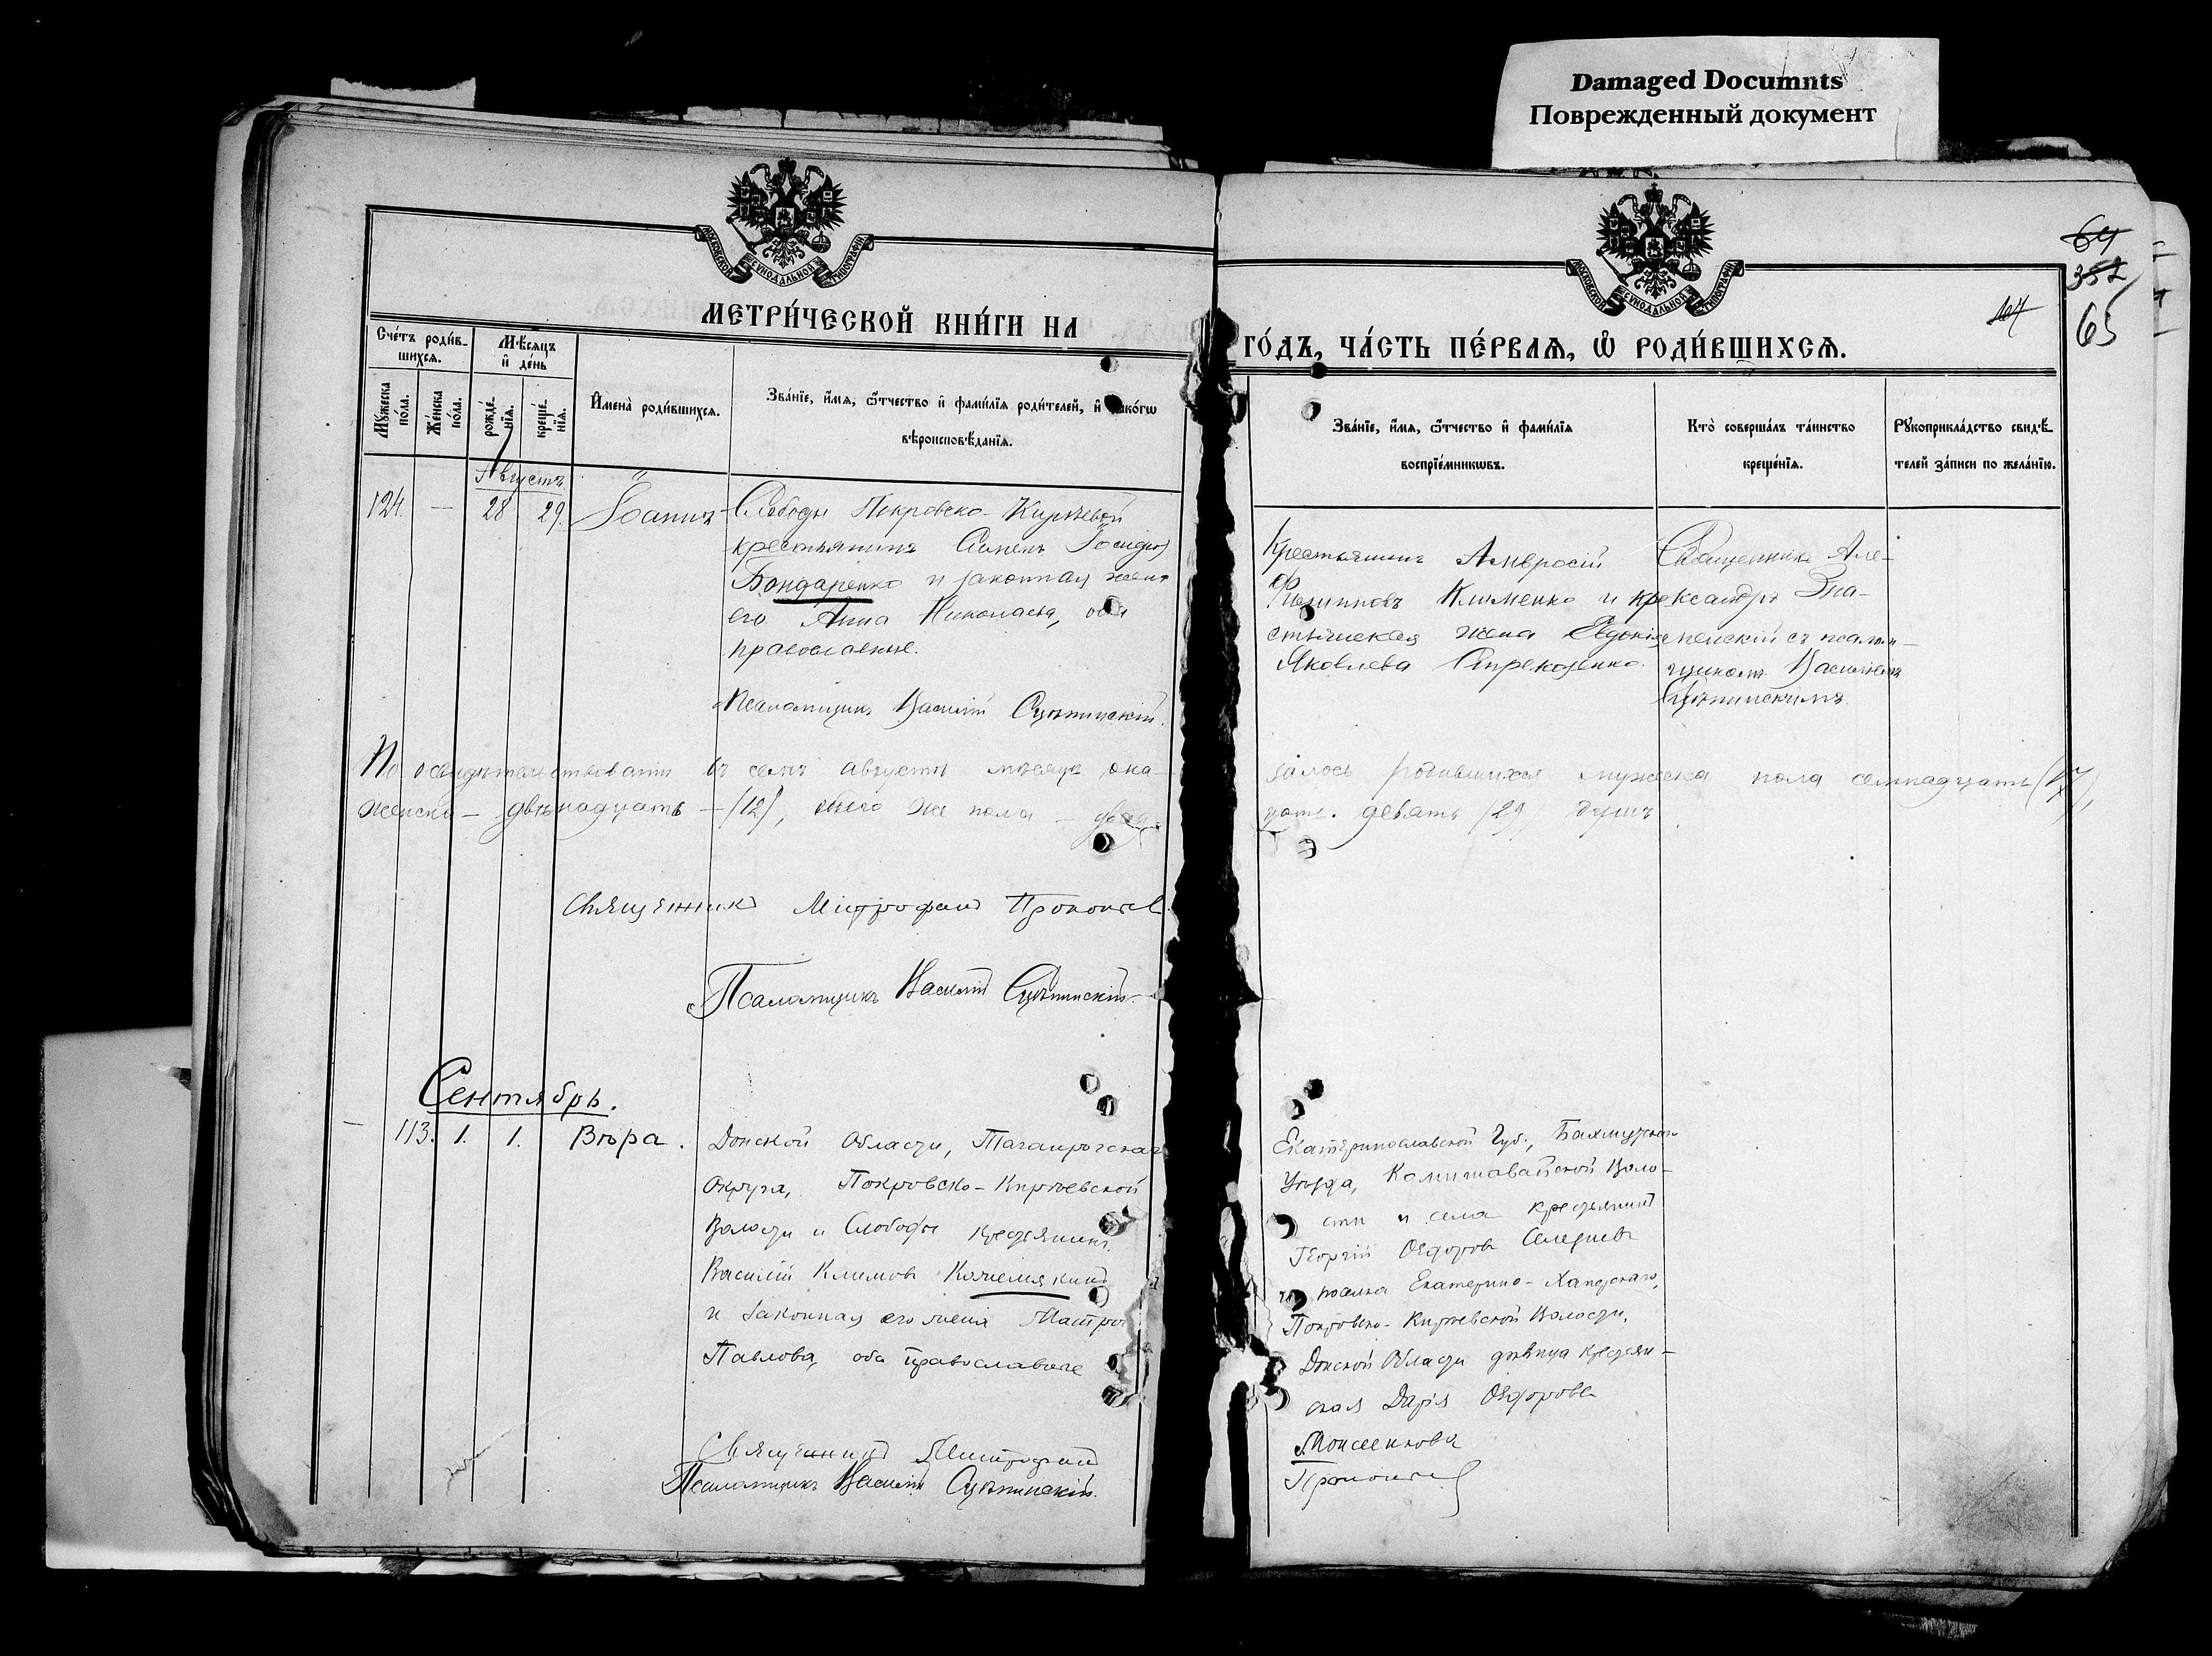 Damaged Documnts
Поврежденный документ
МОСКОВСКОЙ СУНОДАЛЬНОЙ ТИПОГРАФІИ
МОСКОВСКОЙ СУНОДАЛЬНОЙ ТИПОГРАФІИ
64
352
65
МЕТРИ́ЧЕСКОЙ КНИ́ГИ НА
ГО́ДЪ, ЧА́СТЬ ПЕ́РВАѦ, Ѽ РОДИ́ВШИХСѦ.
Сче́тъ роди́в-
шихсѧ.
Мѣ́сѧцъ
и҆ де́нь
Мꙋ́жеска
по́ла.
Же́нска
по́ла.
рожде́-
нїѧ.
креще́-
нїѧ.
И҆мена̀ роди́вшихсѧ.
Зва́нїе, и҆́мѧ, ѻ҆́тчество и҆ фами́лїѧ роди́телей, и҆ како́гѡ
вѣроисповѣ́данїѧ.
Зва́нїе, и҆́мѧ, ѻ҆́тчество и҆ фами́лїѧ
воспрїе́мникѡвъ.
Кто̀ соверша́лъ та́инство
креще́нїѧ.
Рꙋкоприкла́дство свидѣ́-
телей за́писи по жела́нїю.
Августъ
124. — 28 29. Іоаннъ
Слободы Покровско-Кирѣевой
крестьянинъ Симеонъ
Бондаренко и законная жена
его Анна Николаева, оба
православные.
Псаломщикъ Василій
Крестьянинъ Амвросій
Филипповъ Клименко и кре
стьянская жена Евдокія
Яковлева
Священникъ Але-
ксандръ Зна-
менскій съ псалом-
щикомъ Василіемъ
По освидѣтельствованіи въ семъ августѣ мѣсяцѣ ока-
залось родившихся мужеска пола семнадцать (17),
женска — двѣнадцать — (12), обоего же пола — двад-
цать девять (29) душъ
Священникъ Митрофанъ Прокопьев
Псаломщикъ Василій
Сентябрь.
— 113. 1. 1. Вѣра.
Донской Области, Таганрогскаго
Округа, Покровско-Кирѣевской
Волости и Слободы крестьянинъ
Василій Климовъ Кожемякинъ
и законная его жена Матро
Павлова, оба православные
Екатеринославской Губ., Бахмутскаго
Уѣзда, Комишавайской Воло-
сти и села крестьянинъ
Георгій Ѳедоровъ
и поселка Екатерино-Хапрскаго,
Покровско-Кирѣевской Волости,
Донской Области дѣвица крестьян-
ская Дарія Ѳедорова
Моисеенкова
Священникъ Митрофанъ
Прокопьев
Псаломщикъ Василій